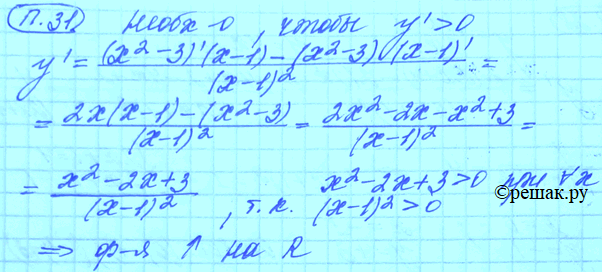 П.31. Необх-о, чтобы y' > 0
y' = \frac{(x² - 3)'(x - 1) - (x² - 3)(x - 1)'}{(x - 1)²} =
= \frac{2x(x - 1) - (x² - 3)}{(x - 1)²} = \frac{2x² - 2x - x² + 3}{(x - 1)²} =
= \frac{x² - 2x + 3}{(x - 1)²}, т.к. x² - 2x + 3 > 0 при ∀x
(x - 1)² > 0
©решак.ру
⇒ ф-я ↑ на R